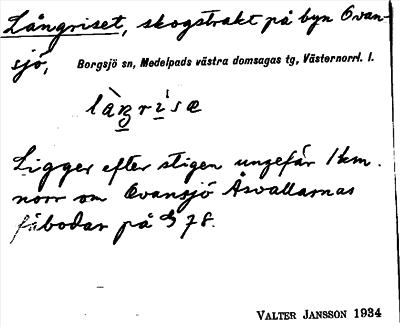 Långriset, skogstrakt på byn Ovan-
sjö, Borgsjö sn, Medelpads västra domsagas tg, Västernorrl. l.
Ligger efter stigen ungefär 1 km.
norr om Ovansjö Åsvallarnas
fäbodar på 78.
VALTER JANSSON 1934